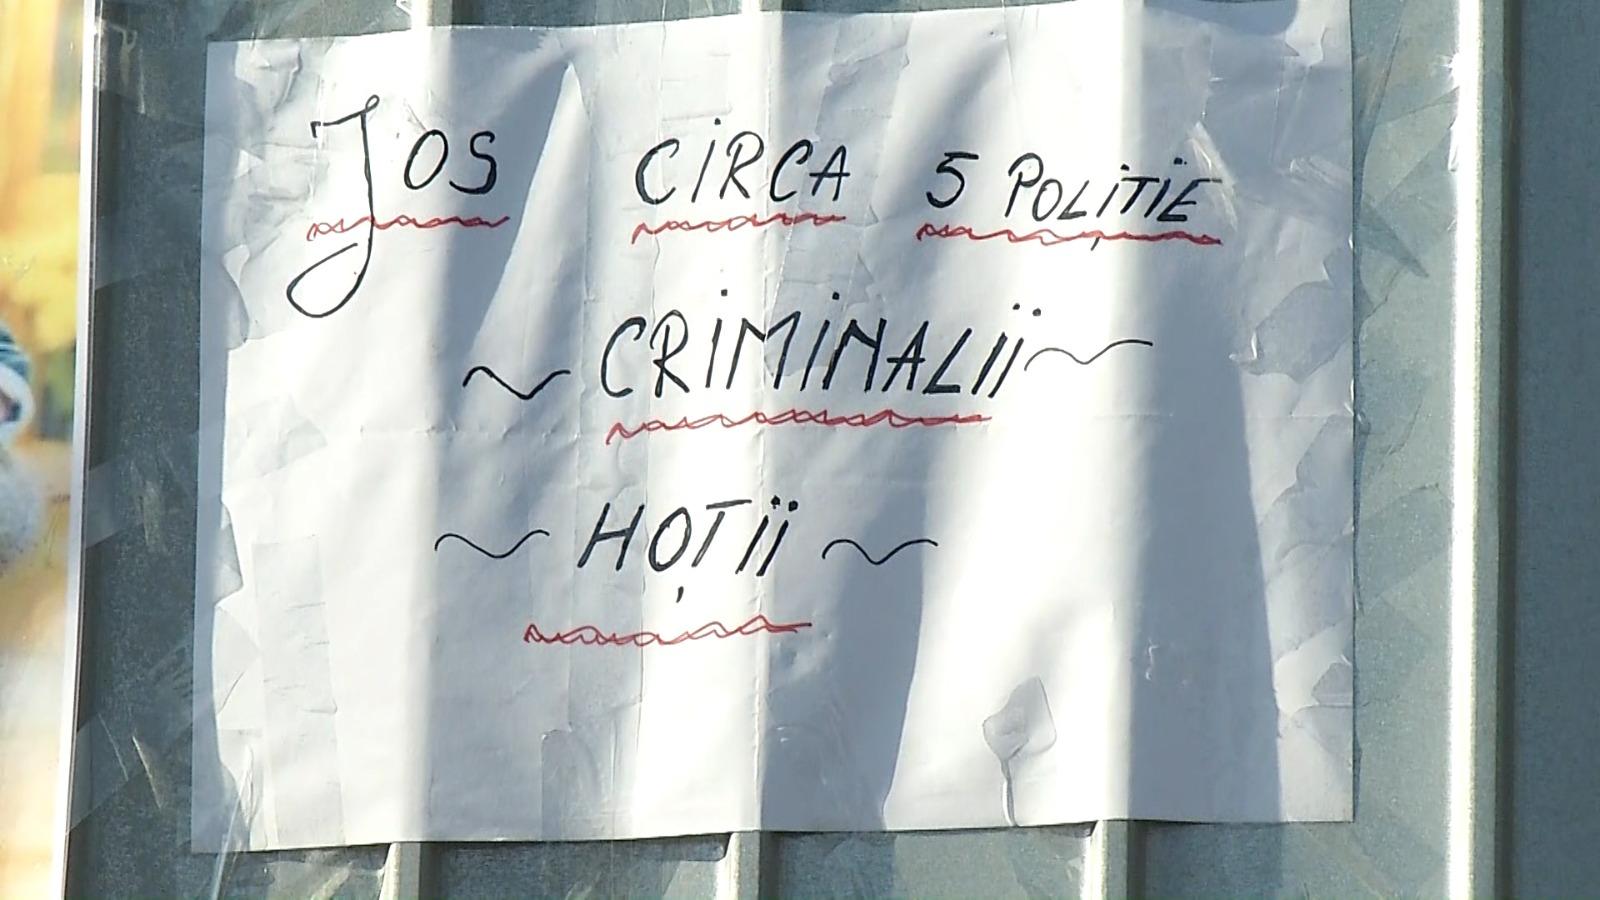 JOS CIRCA 5 POLIȚIE
~ CRIMINALII ~
~ HOȚII ~